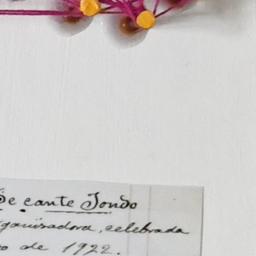 De cante Jondo
ganisadora, celebrada
o de 1922.